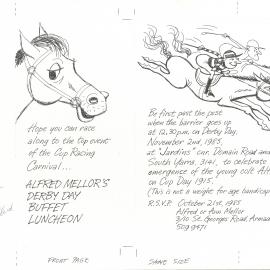 Hope you can race
along to the top event
of the Cup Racing
Carnival...
ALFRED MELLOR'S
DERBY DAY
BUFFET
LUNCHEON
FRONT PAGE
Be first past the post
when the barrier goes up
at 12.30p.m. on Derby Day,
November 2nd, 1985
at "Jardins" cnr. Domain Road and
South Yarra, 3141, to celebrate
emergence of the young colt Alf
on Cup Day 1915.
(This is not a weight for age handicap
R.S.V.P. October 21st, 1985
Alfred or Ann Mellor
3/10 St. Georges Road, Armad
509 9471
SAME SIZE